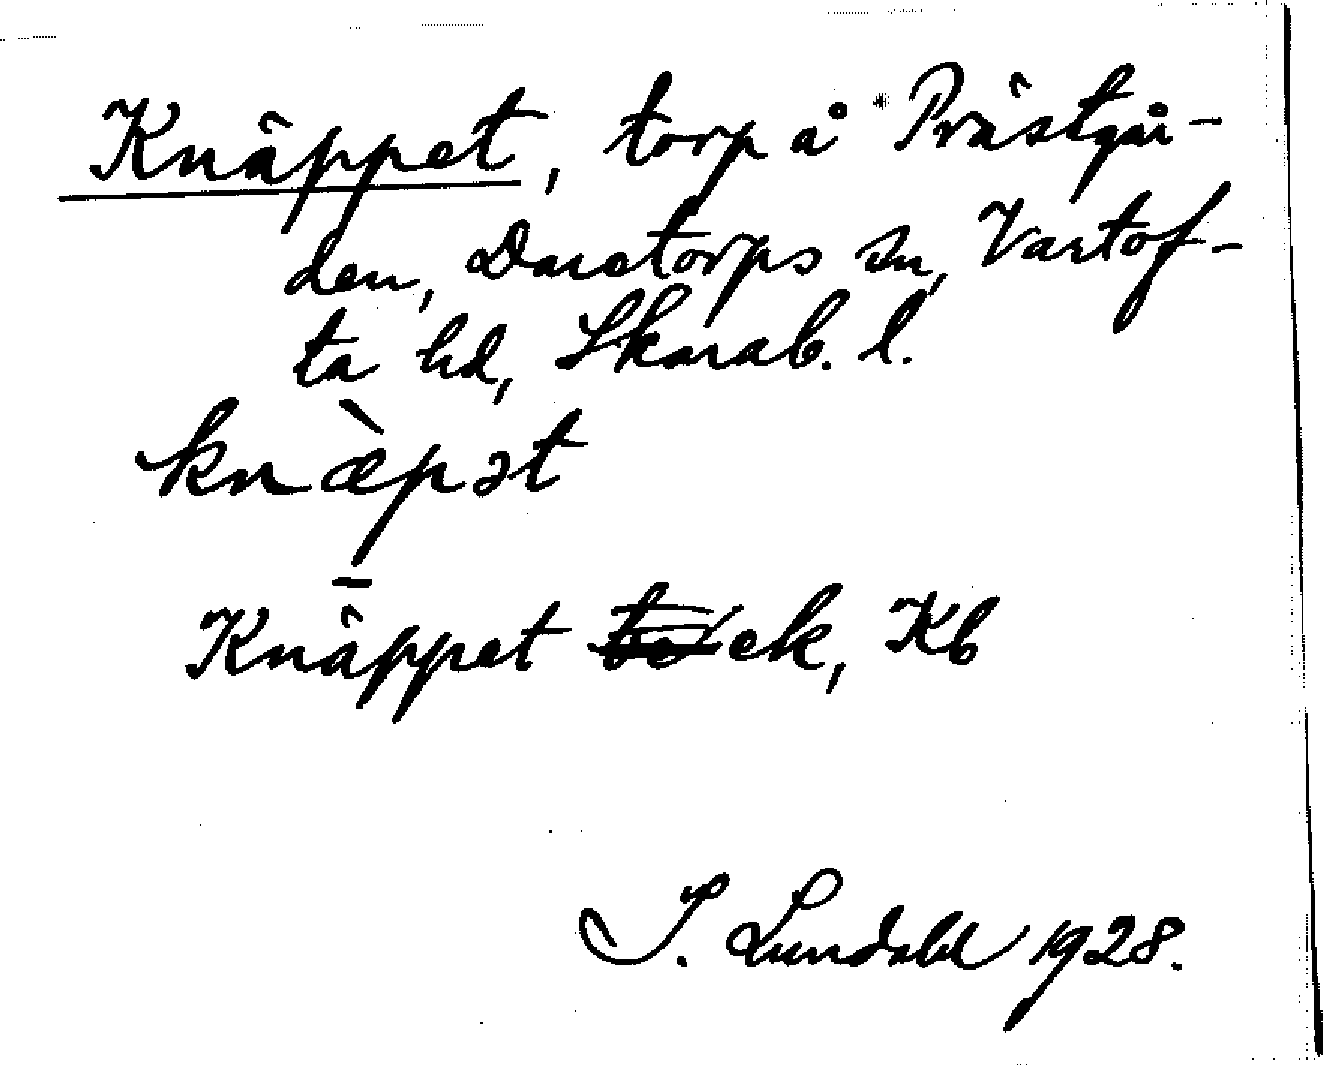 Knäppet, torp å Prästgår-
den, Daretorps sn, Vartof-
ta hd, Skarab. l.
knæ̀pət
Knäppet ek, Kb
I. Lundahl 1928.